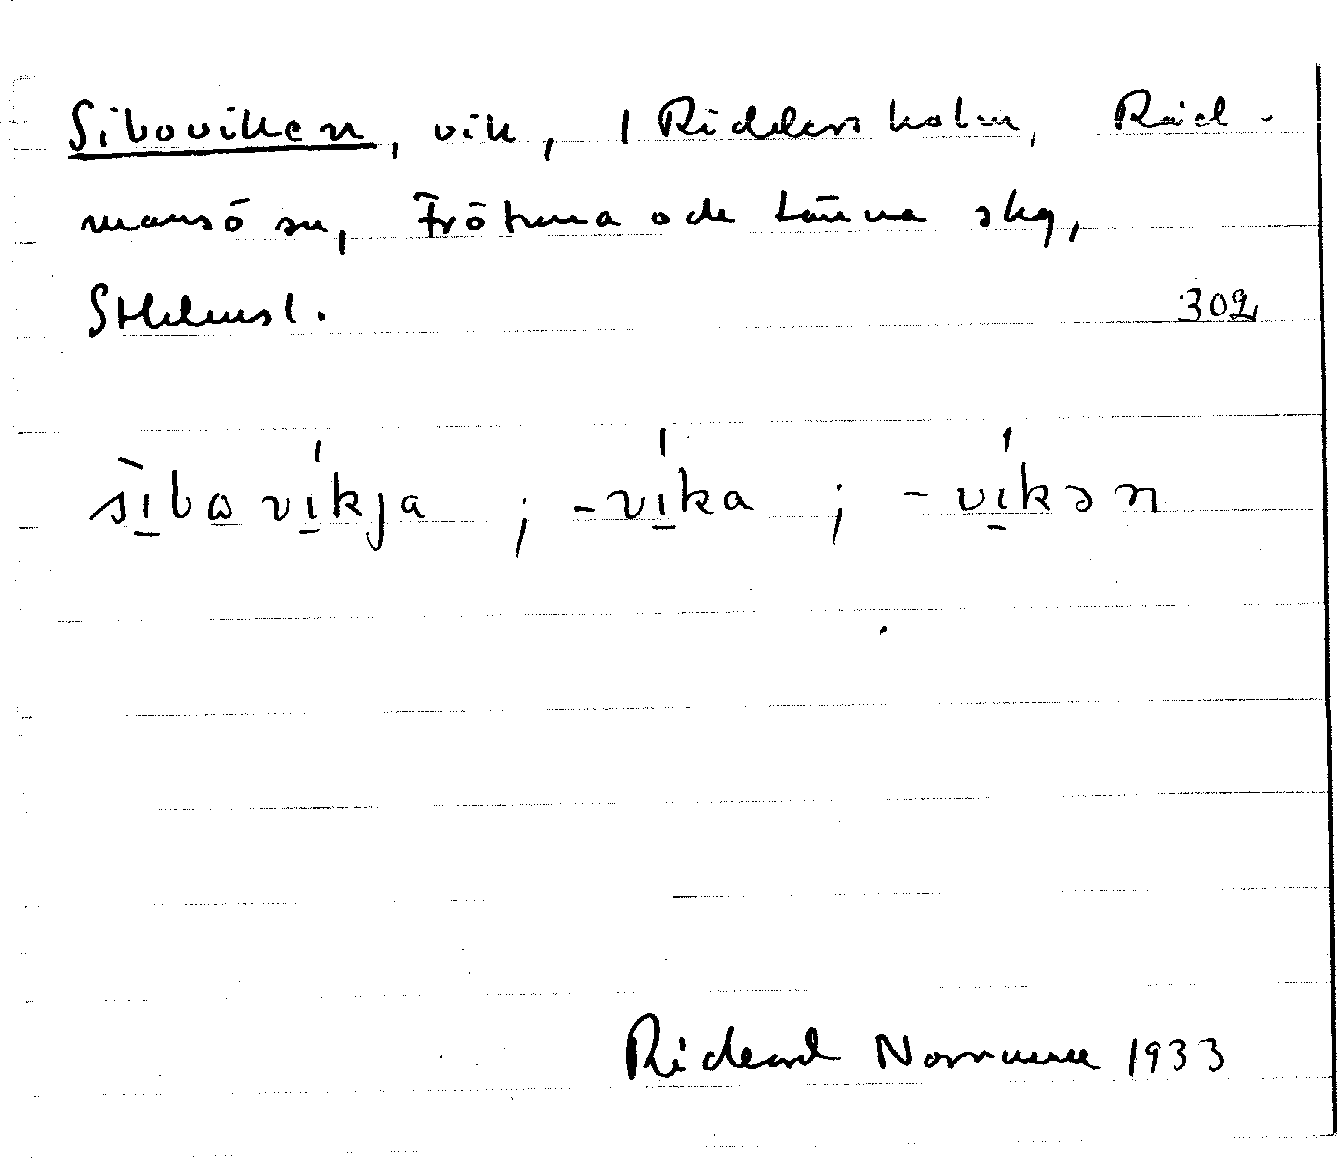 Siboviken, vik, 1 Riddersholm, Råd-
mansö sn, Frötuna och Länna skg,
Sthlmsl. 302
sìbωvi̱kja ; -vi̱ka ; -vi̱kən
Rickard Norrman 1933